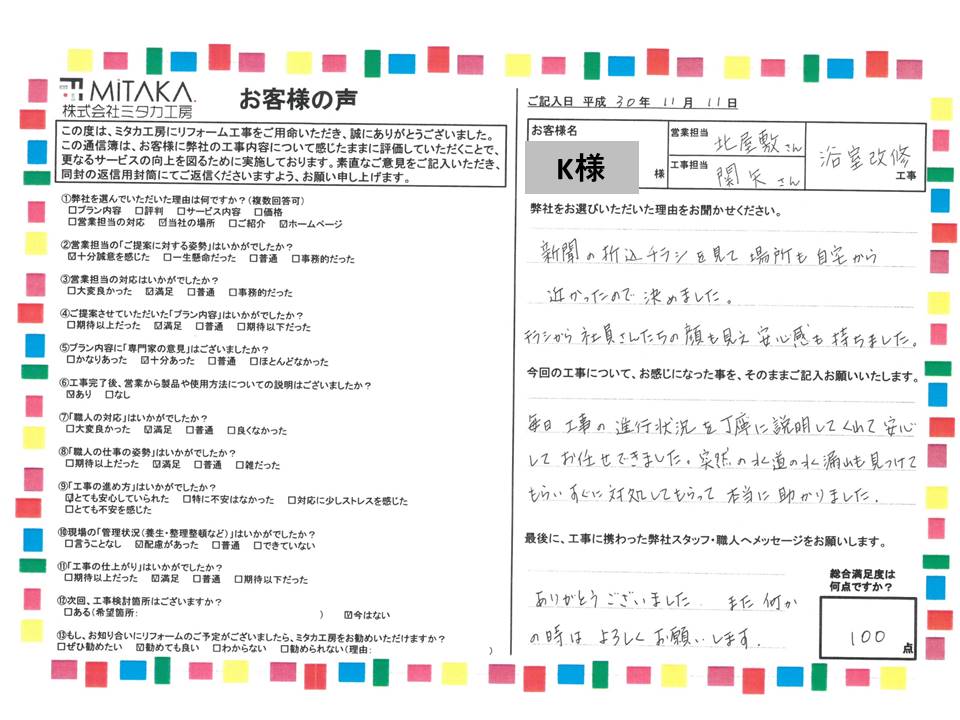 MiTAKA.
株式会社ミタカ工房
お客様の声
この度は、ミタカ工房にリフォーム工事をご用命いただき、誠にありがとうございました。
この通信簿は、お客様に弊社の工事内容について感じたままに評価していただくことで、
更なるサービスの向上を図るために実施しております。素直なご意見をご記入いただき、
同封の返信用封筒にてご返信くださいますよう、お願い申し上げます。
①弊社を選んでいただいた理由は何ですか?(複数回答可)
□プラン内容 □評判 □サービス内容 □価格
□営業担当の対応 ☑当社の場所 □ご紹介 ☑ホームページ
②営業担当の「ご提案に対する姿勢」はいかがでしたか?
☑十分誠意を感じた □一生懸命だった □普通 □事務的だった
③営業担当の対応はいかがでしたか?
□大変良かった ☑満足 □普通 □事務的だった
④ご提案させていただいた「プラン内容」はいかがでしたか?
□期待以上だった ☑満足 □普通 □期待以下だった
⑤プラン内容に「専門家の意見」はございましたか?
□かなりあった ☑十分あった □普通 □ほとんどなかった
⑥工事完了後、営業から製品や使用方法についての説明はございましたか?
☑あり □なし
⑦「職人の対応」はいかがでしたか?
□大変良かった ☑満足 □普通 □良くなかった
⑧「職人の仕事の姿勢」はいかがでしたか?
□期待以上だった ☑満足 □普通 □雑だった
⑨「工事の進め方」はいかがでしたか?
☑とても安心していられた □特に不安はなかった □対応に少しストレスを感じた
□とても不安を感じた
⑩現場の「管理状況(養生・整理整頓など)」はいかがでしたか?
□言うことなし ☑配慮があった □普通 □できていない
⑪「工事の仕上がり」はいかがでしたか?
□期待以上だった ☑満足 □普通 □期待以下だった
⑫次回、工事検討箇所はございますか?
□ある(希望箇所: ) ☑今はない
⑬もし、お知り合いにリフォームのご予定がございましたら、ミタカ工房をお勧めいただけますか?
□ぜひ勧めたい ☑勧めても良い □わからない □勧められない(理由: )
ご記入日 平成 30年 11月 11日
お客様名
K様
様
営業担当 北屋敷さん
工事担当 関矢さん
浴室改修
工事
弊社をお選びいただいた理由をお聞かせください。
新聞の折込チラシを見て場所も自宅から
近かったので決めました。
チラシから社員さんたちの顔も見え安心感も持ちました。
今回の工事について、お感じになった事を、そのままご記入お願いいたします。
毎日工事の進行状況を丁寧に説明してくれて安心
してお任せできました。突然の水道の水漏れも見つけて
もらいすぐに対処してもらって本当に助かりました.
最後に、工事に携わった弊社スタッフ・職人へメッセージをお願いします。
ありがとうございました. また何か
の時はよろしくお願いします.
総合満足度は
何点ですか?
100
点